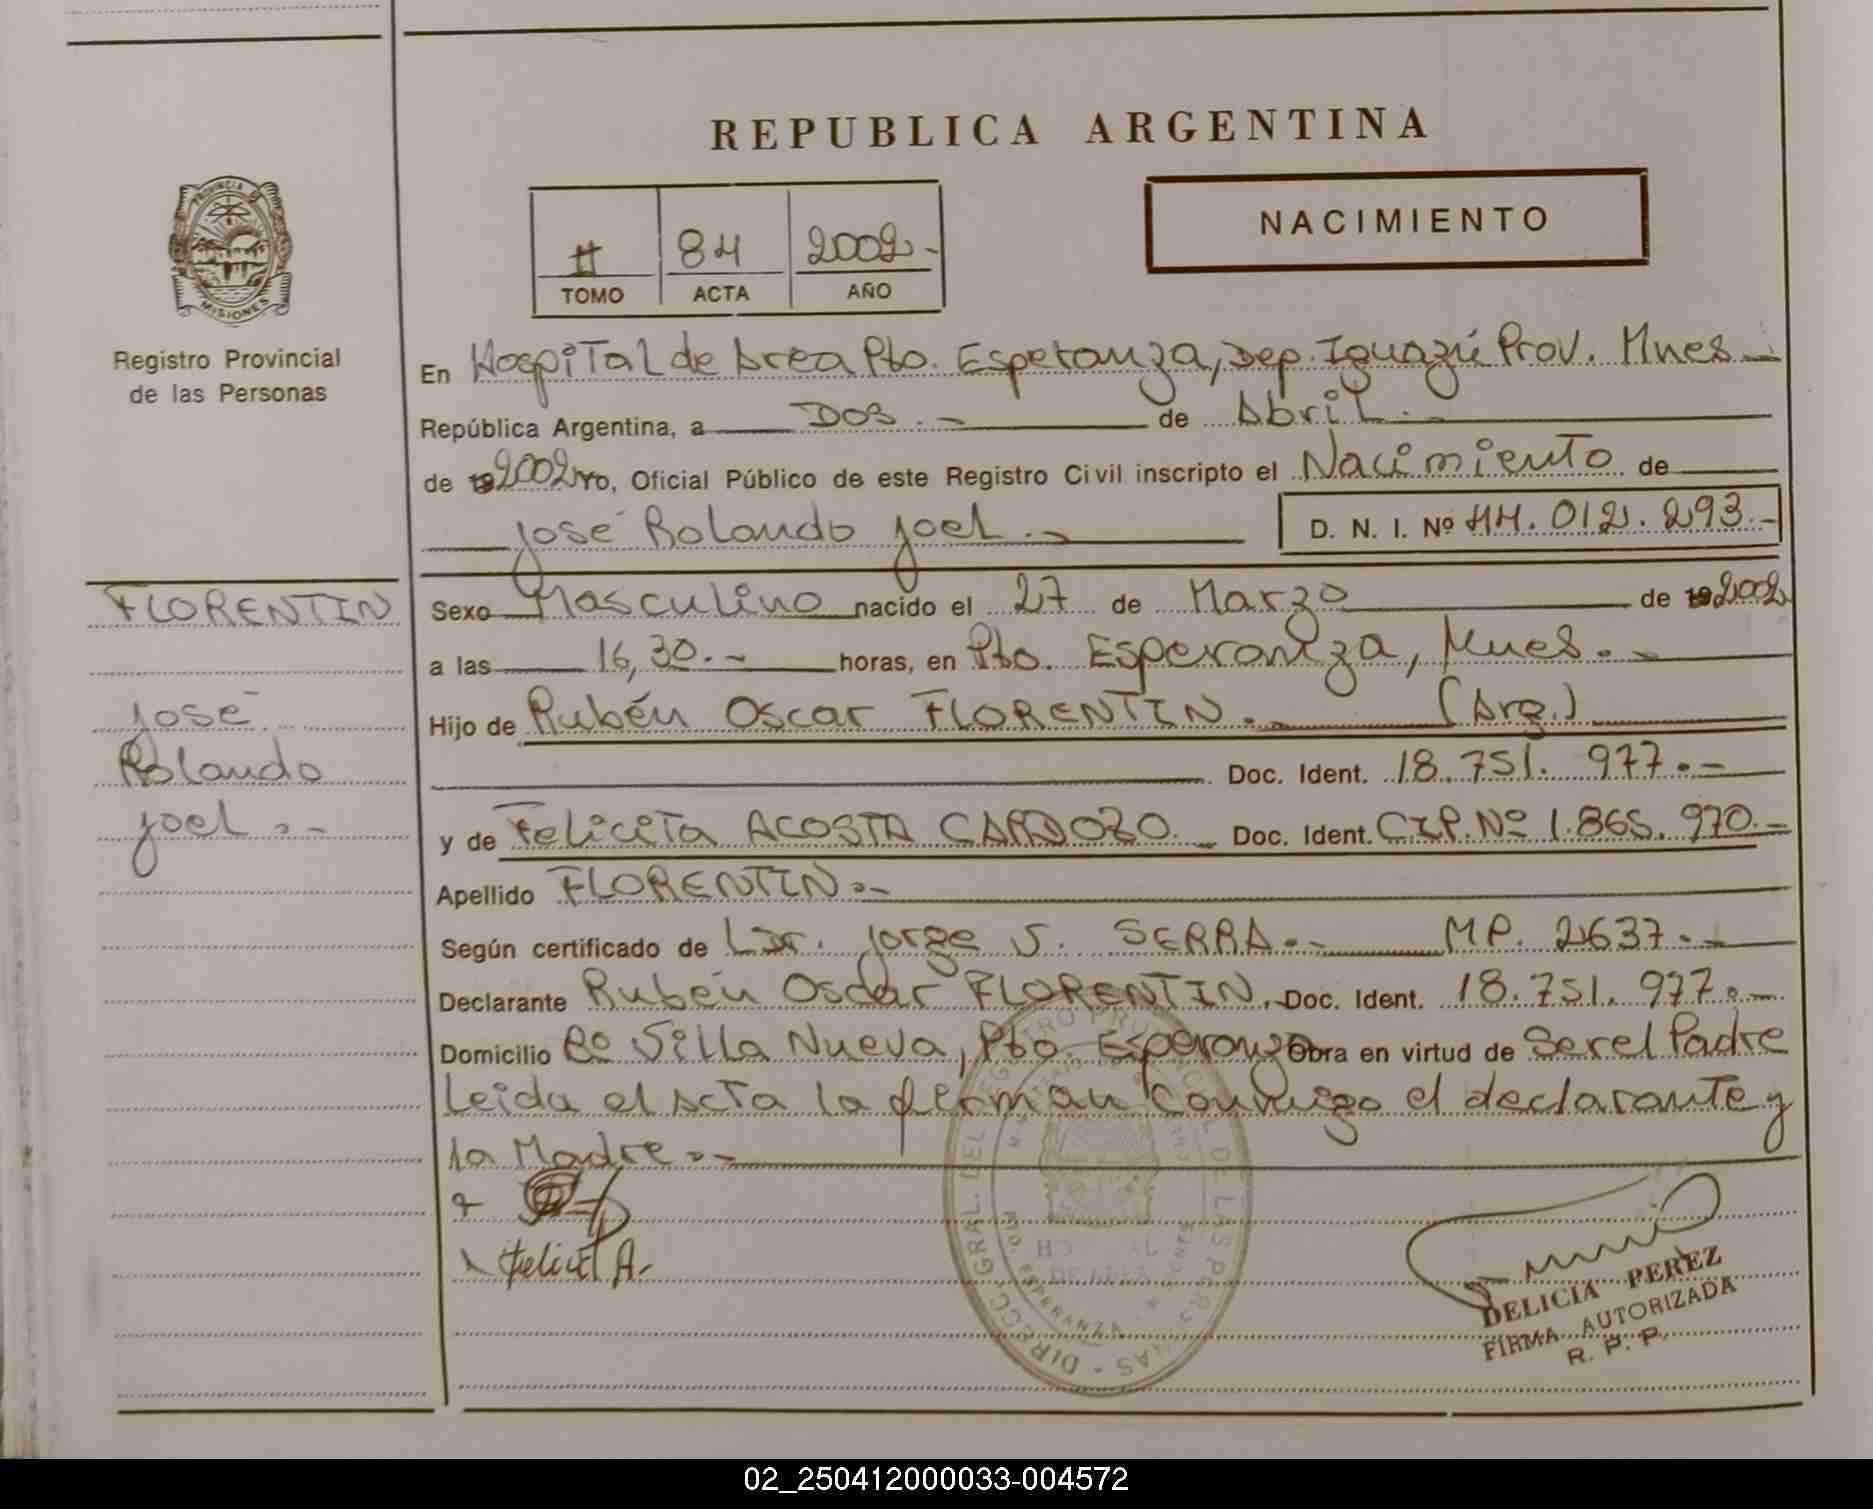 REPUBLICA ARGENTINA
PROVINCIA DE
MISIONES
Registro Provincial
de las Personas
NACIMIENTO
84 2002.-
TOMO ACTA AÑO
En Hospital de Area Pto. Esperanza, Dep. Iguazú Prov. Mnes.-
República Argentina, a Dos.- de Abril.-
de 19 2002 yo, Oficial Público de este Registro Civil inscripto el Nacimiento de
José Rolando Joel.- D. N. I. Nº 44.012.293.-
FLORENTIN
José
Rolando
Joel.-
Sexo Masculino nacido el 27 de Marzo de 19 2002
a las 16,30.- horas, en Pto. Esperanza, Mnes.-
Hijo de Rubén Oscar FLORENTIN.- (Arg.)
Doc. Ident. 18.751.977.-
y de Felicita ACOSTA CARDOZO.- Doc. Ident. C.I.P. Nº 1.865.970.-
Apellido FLORENTIN.-
Según certificado de Jorge S. SERRA.- MP. 2637.-
Declarante Rubén Oscar FLORENTIN.- Doc. Ident. 18.751.977.-
Domicilio Bº Villa Nueva, Pto. Esperanza Obra en virtud de Ser el Padre
Leida el Acta la firman Conmigo el declarante y
la Madre.-
DELICIA PEREZ
FIRMA AUTORIZADA
R. P. P.
02_250412000033-004572